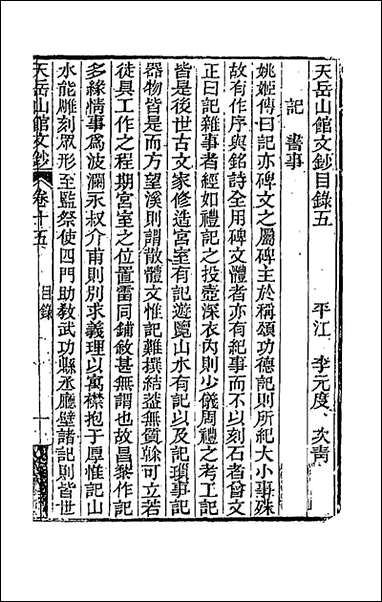 天岳山館文鈔目錄五
平江 李元度 次青
記 書事
姚姬傳曰記亦碑文之屬碑主於稱頌功德記則所紀大小事殊
故有作序與銘詩全用碑文體者亦有紀事而不以刻石者曾文
正曰記雜事者經如禮記之投壺深衣內則少儀周禮之考工記
皆是後世古文家修造宮室有記遊覽山水有記以及記瑣事記
器物皆是而方望溪則謂散體文惟記難撰結葢無質榦可立若
徒具工作之程期宮室之位置雷同鋪敘甚無謂也故昌黎作記
多緣情事為波瀾永叔介甫則別求義理以寓襟抱子厚惟記山
水能雕刻眾形至監祭使四門助教武功縣丞廳壁諸記則皆世
天岳山館文鈔 卷十五 目錄 一